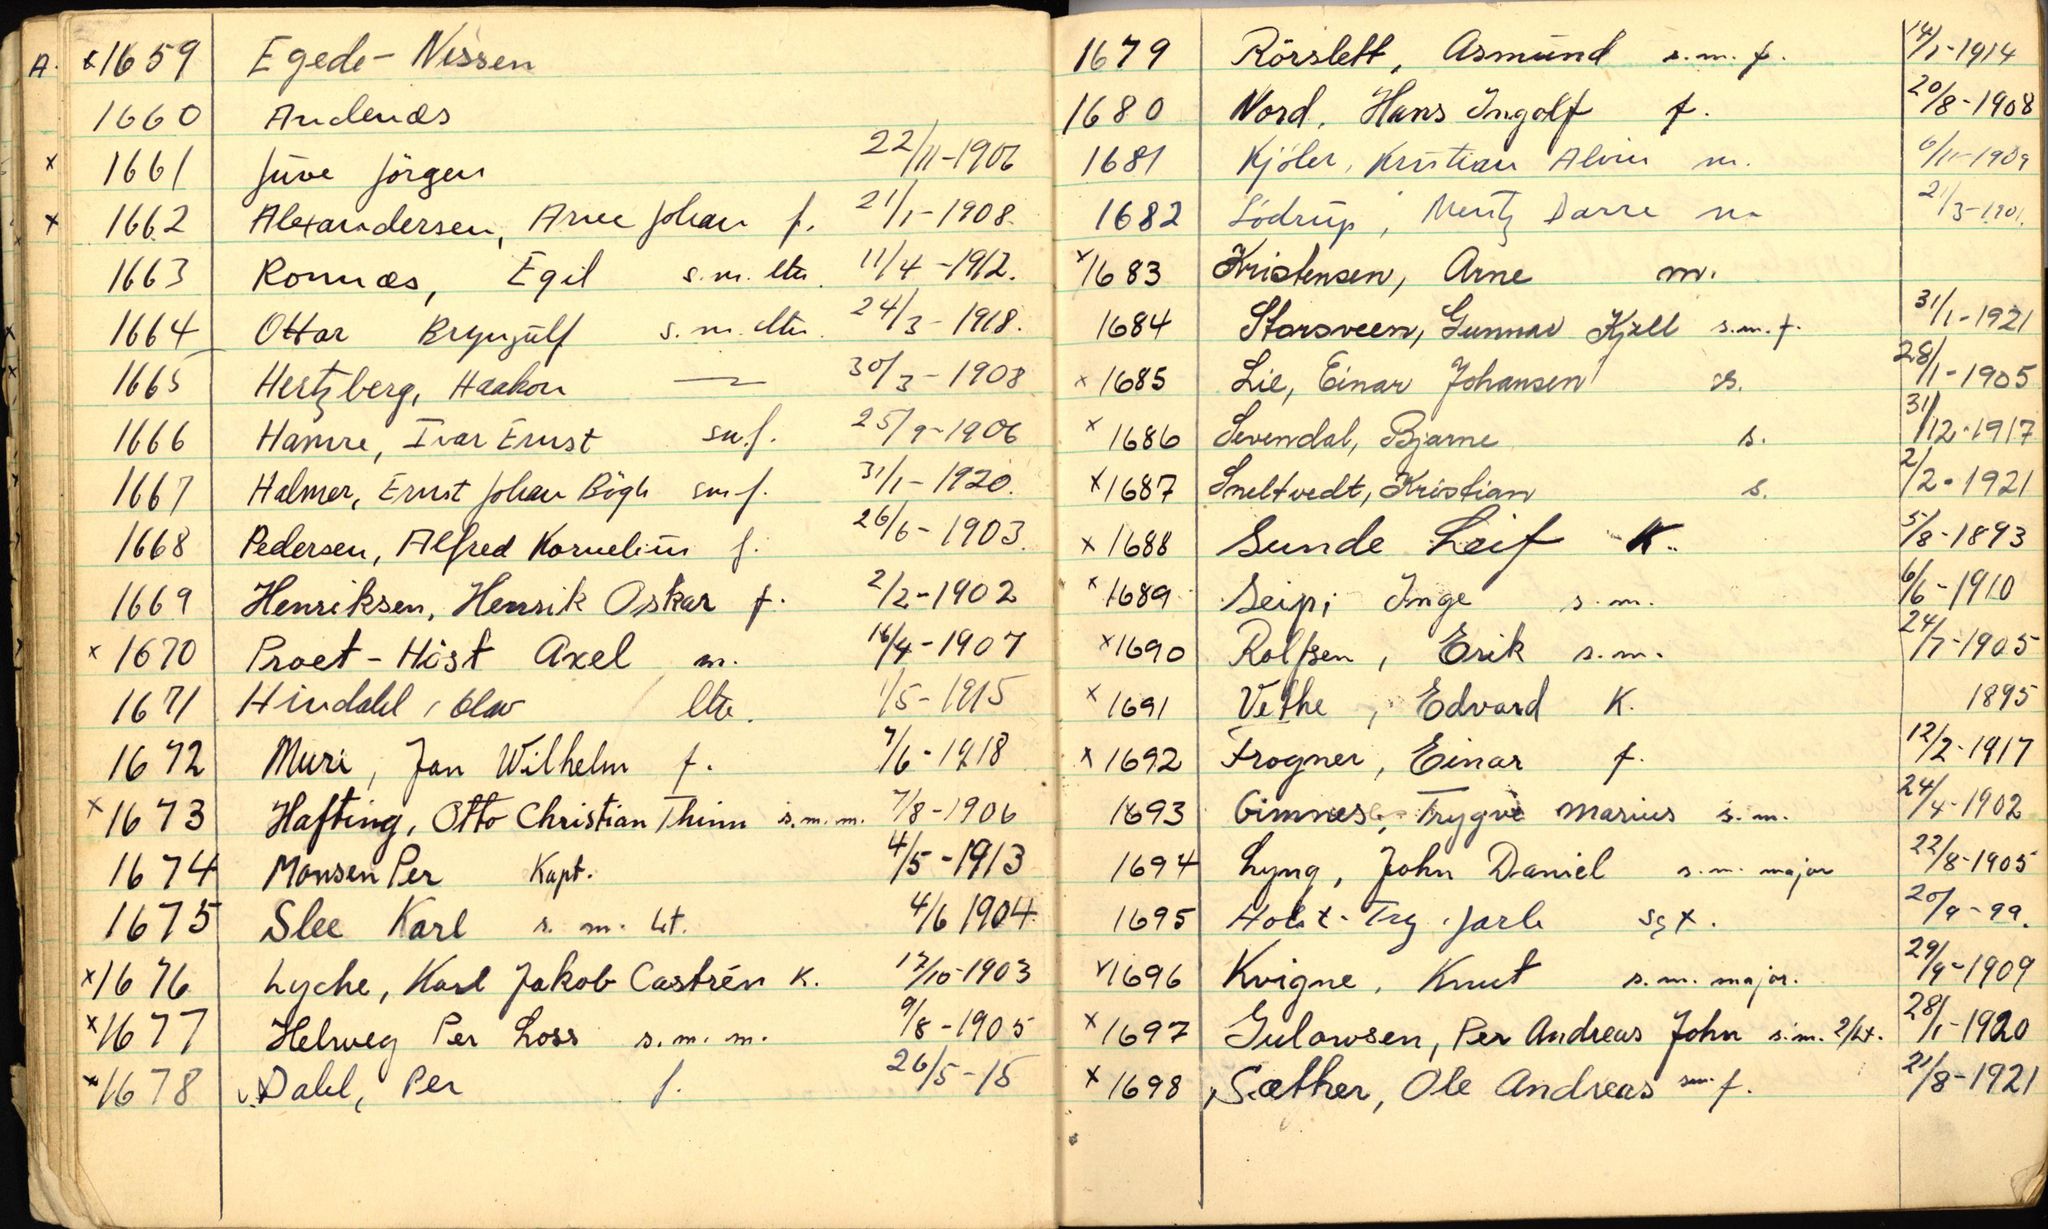 A. x 1659 Egede-Nissen
1660 Andenæs
x 1661 Juve Jörgen 22/11-1906
x 1662 Alexandersen, Arne Johan f. 21/1-1908.
1663 Romnæs, Egil s.m. ltn. 11/4-1912.
1664 Ottar Brynjulf s.m. ltn. 24/3-1918.
1665 Hertzberg, Haakon — 30/3-1908
1666 Hamre, Ivar Ernst sm.f. 25/9-1906
1667 Halmer, Ernst Johan Bögh sm f. 31/1-1920.
1668 Pedersen, Alfred Kornelius f. 26/6-1903.
1669 Henriksen, Henrik Oskar f. 2/2-1902
x 1670 Proet-Höst Axel m. 16/4-1907
1671 Hindahl, Olav ltn. 1/5-1915
1672 Muri, Jan Wilhelm f. 7/6-1918
x 1673 Hafting, Otto Christian Thinn s.m.m. 7/8-1906
1674 Monsen Per Kapt. 4/5-1913
1675 Slee Karl s.m. Lt. 4/6 1904
x 1676 Lyche, Karl Jakob Castrén K. 17/10-1903
x 1677 Helweg Per Loss s.m.m. 9/8-1905
x 1678 Dahl, Per f. 26/5-15
1679 Rörslett, Asmund s.m.f. 14/1-1914
1680 Nord, Hans Ingolf f. 20/8-1908
1681 Kjöler, Kristian Alvin m. 6/11-1909
1682 Lödrup, Mentz Darre m 21/3-1901.
x 1683 Kristensen, Arne m.
1684 Storsveen, Gunnar Kjell s.m.f. 31/1-1921
x 1685 Lie, Einar Johansen s. 28/1-1905
x 1686 Sevendal, Bjarne s. 31/12-1917
x 1687 Sneltvedt, Kristian s. 2/2-1921
x 1688 Sunde Leif K. 5/8-1893
x 1689 Seip, Inge s.m. 6/6-1910
x 1690 Rolfsen, Erik s.m. 24/7-1905
x 1691 Vethe, Edvard K. 1895
x 1692 Frogner, Einar f. 12/2-1917
1693 Gimnes, Trygve Marius s.m. 24/4-1902
1694 Lyng, John Daniel s.m. major 22/8-1905
1695 Holst-Try. Jarle sgt. 20/9-99.
x 1696 Kvigne, Knut s.m. major. 29/9-1909
x 1697 Gulowsen, Per Andreas John s.m. 2/Lt. 28/1-1920
x 1698 Sæther, Ole Andreas sm. f. 21/8-1921